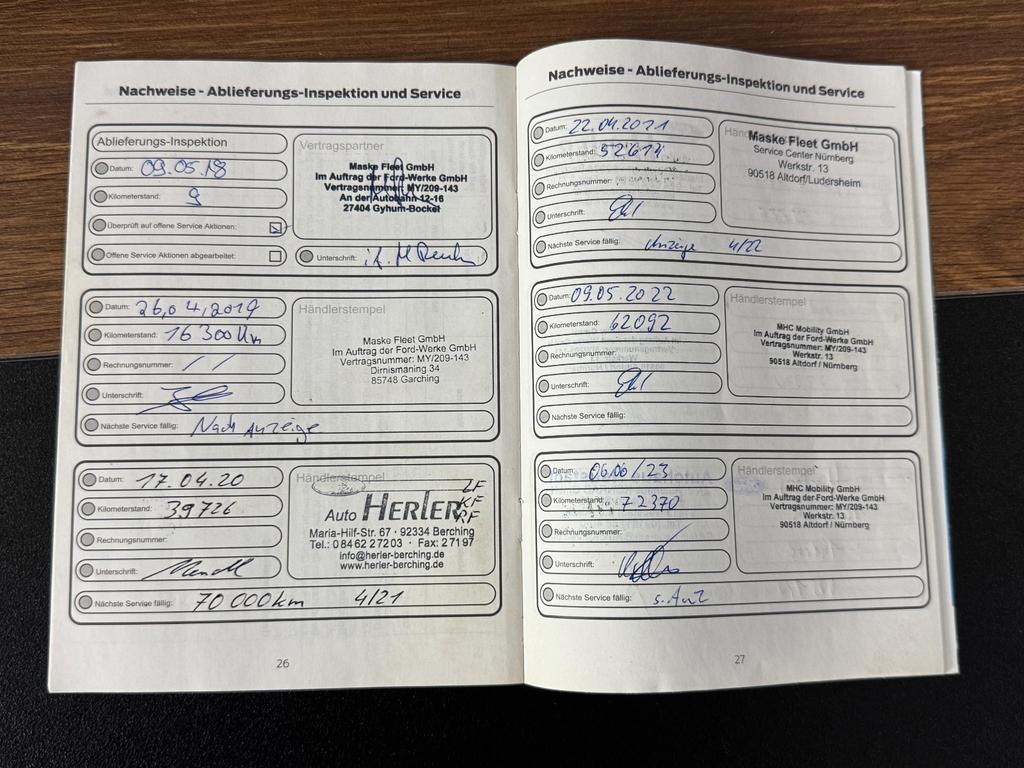 Nachweise - Ablieferungs-Inspektion und Service
Ablieferungs-Inspektion
Datum: 09.05.18
Kilometerstand: 9
Überprüft auf offene Service Aktionen:
Offene Service Aktionen abgearbeitet:
Vertragspartner
Maske Fleet GmbH
Im Auftrag der Ford-Werke GmbH
Vertragsnummer: MY/209-143
An der Autobahn 12-16
27404 Gyhum-Bockel
Unterschrift:
Datum: 26,04,2019
Kilometerstand: 16300 Km
Rechnungsnummer: / /
Unterschrift:
Nächste Service fällig: Nach Anzeige
Händlerstempel
Maske Fleet GmbH
Im Auftrag der Ford-Werke GmbH
Vertragsnummer: MY/209-143
Dirnismaning 34
85748 Garching
Datum: 17.04.20
Kilometerstand: 39726
Rechnungsnummer:
Unterschrift:
Nächste Service fällig: 70 000km 4/21
Händlerstempel
Auto HERLER
LF
KF
RF
Maria-Hilf-Str. 67 · 92334 Berching
Tel.: 0 84 62 27203 · Fax: 27197
info@herler-berching.de
www.herler-berching.de
26
Nachweise - Ablieferungs-Inspektion und Service
Datum: 22.04.2021
Kilometerstand: 52614
Rechnungsnummer:
Unterschrift:
Nächste Service fällig: Anzeige 4/22
Maske Fleet GmbH
Service Center Nürnberg
Werkstr. 13
90518 Altdorf/Ludersheim
Datum: 09.05.2022
Kilometerstand: 62092
Rechnungsnummer:
Unterschrift:
Nächste Service fällig:
Händlerstempel
MHC Mobility GmbH
Im Auftrag der Ford-Werke GmbH
Vertragsnummer: MY/209-143
Werkstr. 13
90518 Altdorf / Nürnberg
Datum: 06.06/23
Kilometerstand: 72370
Rechnungsnummer:
Unterschrift:
Nächste Service fällig: s. Anz
Händlerstempel
MHC Mobility GmbH
Im Auftrag der Ford-Werke GmbH
Vertragsnummer: MY/209-143
Werkstr. 13
90518 Altdorf / Nürnberg
27